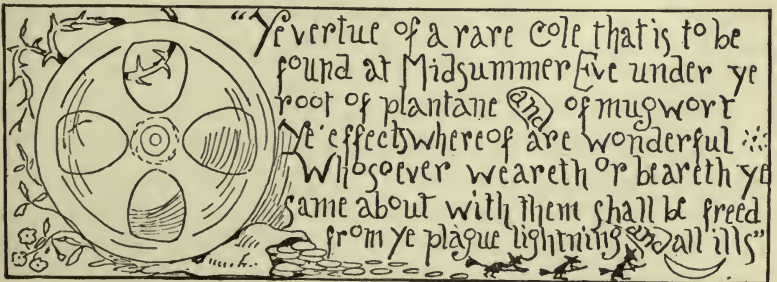 "Ye vertue of a rare Cole that is to be
found at Midsummer Eve under ye
root of plantane and of mugwort
Ye effects whereof are wonderful
Whosoever weareth or beareth ye
same about with them shall be freed
from ye plague lightning and all ills"